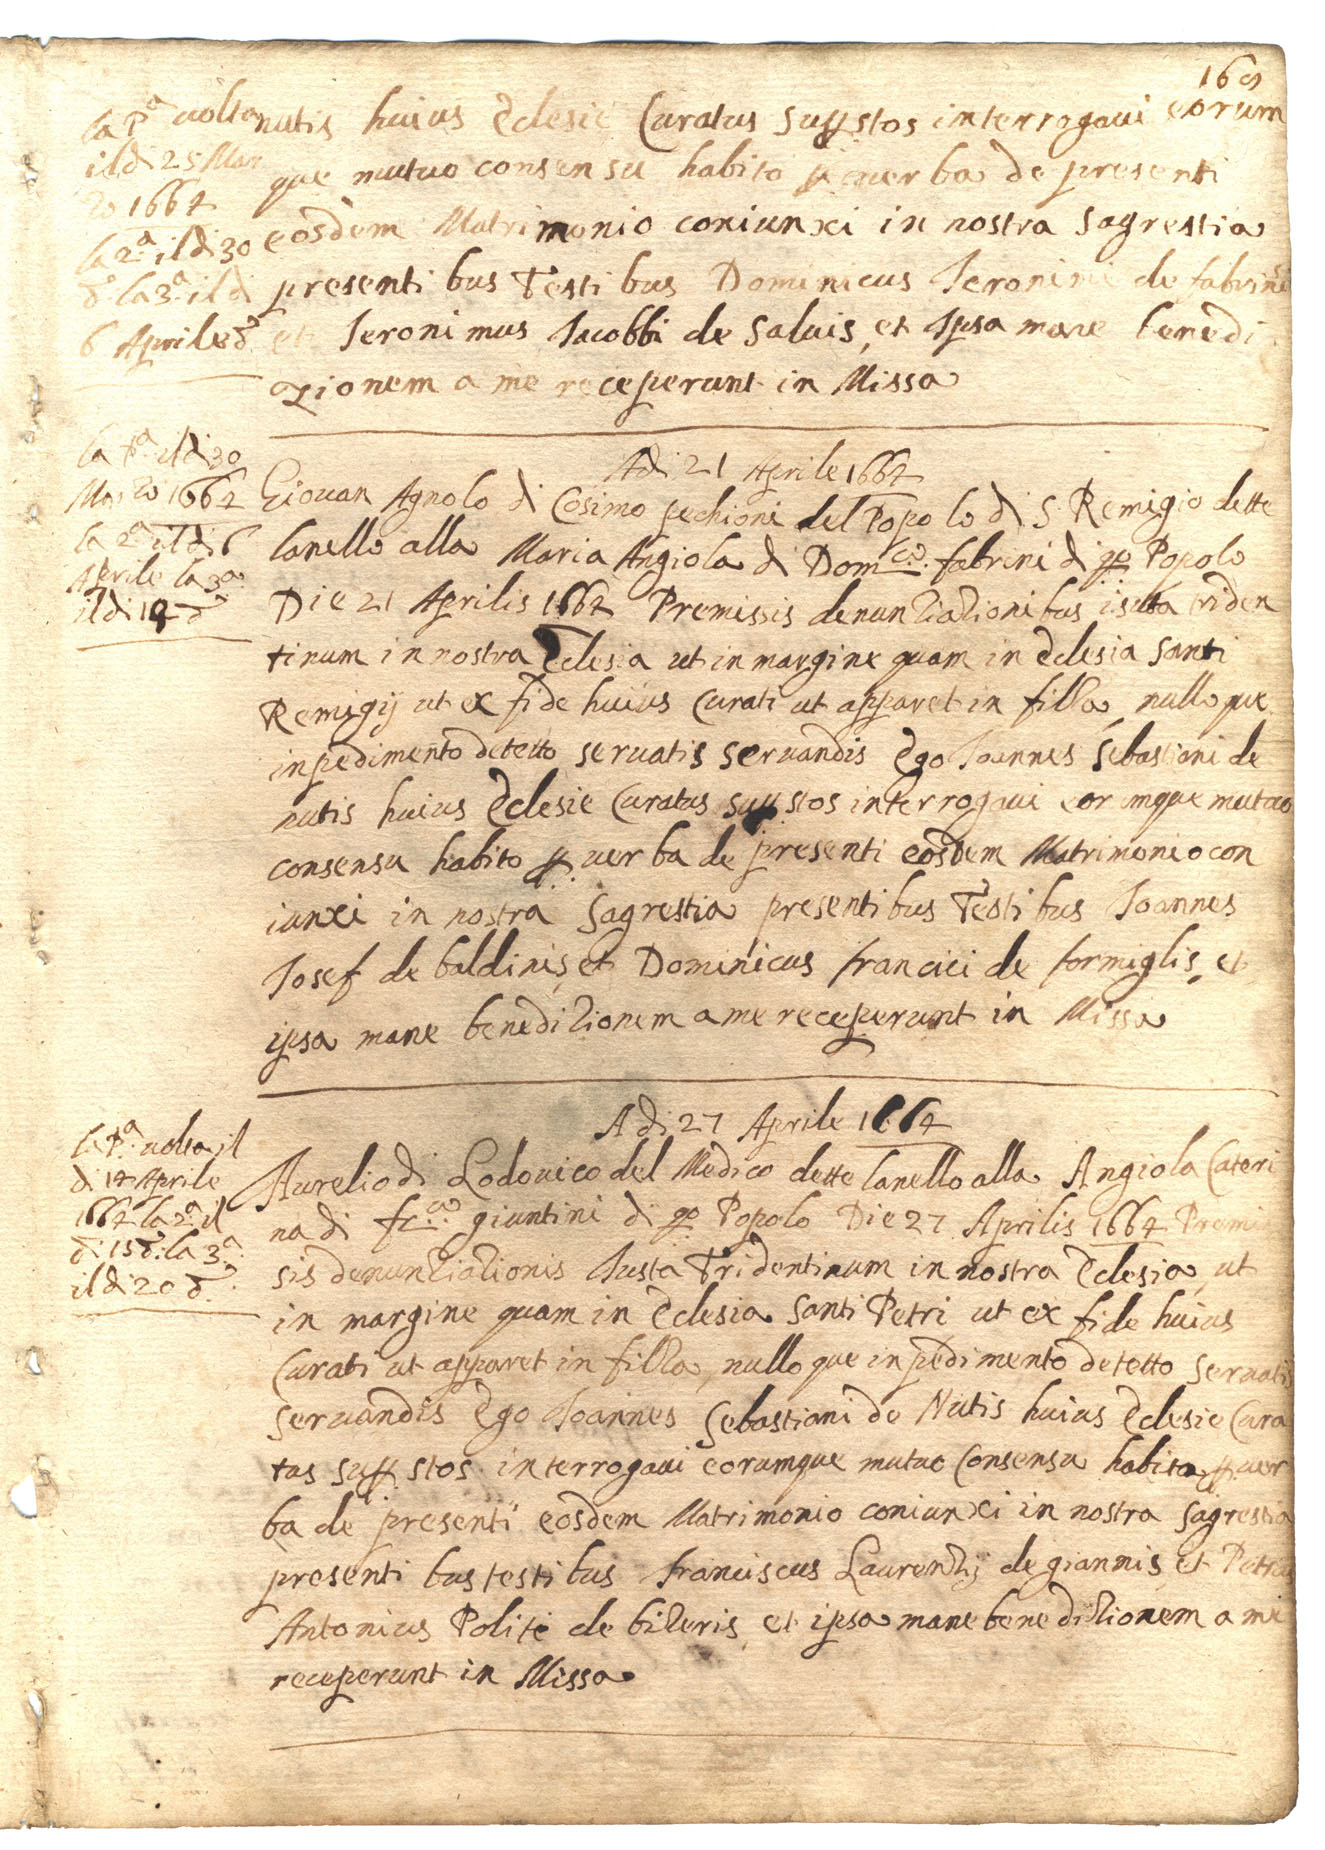 169
la Pa uolta
il di 25 Mar
zo 1664
la 2a il di 30
do la 3a il di
6 Aprile do
nutis huius Eclesie Curatus supstos interrogaui eorum
que mutuo consensu habito p uerba de presenti
eosdem Matrimonio coniunxi in nostra sagrestia
presenti bus Testi bus Dominicus Jeronimi de fabrinis
et Jeronimus Jacobbi de Saluis, et Ipsa mane benedi
zionem a me receperunt in Missa
la Pa il di 30
Marzo 1664
la 2a il di 6
Aprile la 3a
il di 14 do
Adi 21 Aprile 1664
Giouan Agnolo di Cosimo pechioni del Popolo di S. Remigio dette
lanello alla Maria Angiola di Domco fabrini di qo Popolo
Die 21 Aprilis 1664 Premissis denunziazionibus iusta triden
tinum in nostra Eclesia ut in margine quam in Eclesia Santi
Remigij ut ex fide huius Curati ut apparet in filza, nulloque
inpedimento detetto seruatis seruandis Ego Joannes Sebastiani de
nutis huius Eclesie Curatus supstos interrogaui eorumque mutuo
consensu habito p uerba de presenti eosdem Matrimonio con
iunxi in nostra sagrestia presentibus Testi bus Joannes
Josef de baldinis, et Dominicus francici de formiglis, et
ipsa mane benedizionem a me receperunt in Missa
la Pa uolta il
di 14 Aprile
1664 la 2a il
di 15 do la 3a
il di 20 do
Adi 27 Aprile 1664
Aurelio di Lodouico del Medico dette lanello alla Angiola Cateri
na di fco giuntini di qo Popolo Die 27 Aprilis 1664 Premis
sis denunziazionis Iusta Tridentinum in nostra Eclesia, ut
in margine quam in Eclesia Santi Petri ut ex fide huius
Curati ut apparet in filza, nullo que inpedimento detetto seruatis
seruandis Ego Joannes Sebastiani de Nutis huius Eclesie Cura
tus supstos interrogaui eorumque mutuo Consensu habito p uer
ba de presenti eosdem Matrimonio coniunxi in nostra sagrestia
presenti bus testi bus franciscus Laurentij de giannis, et Petrus
Antonius Politi de bizeris, et ipsa mane benedizionem a me
receperunt in Missa